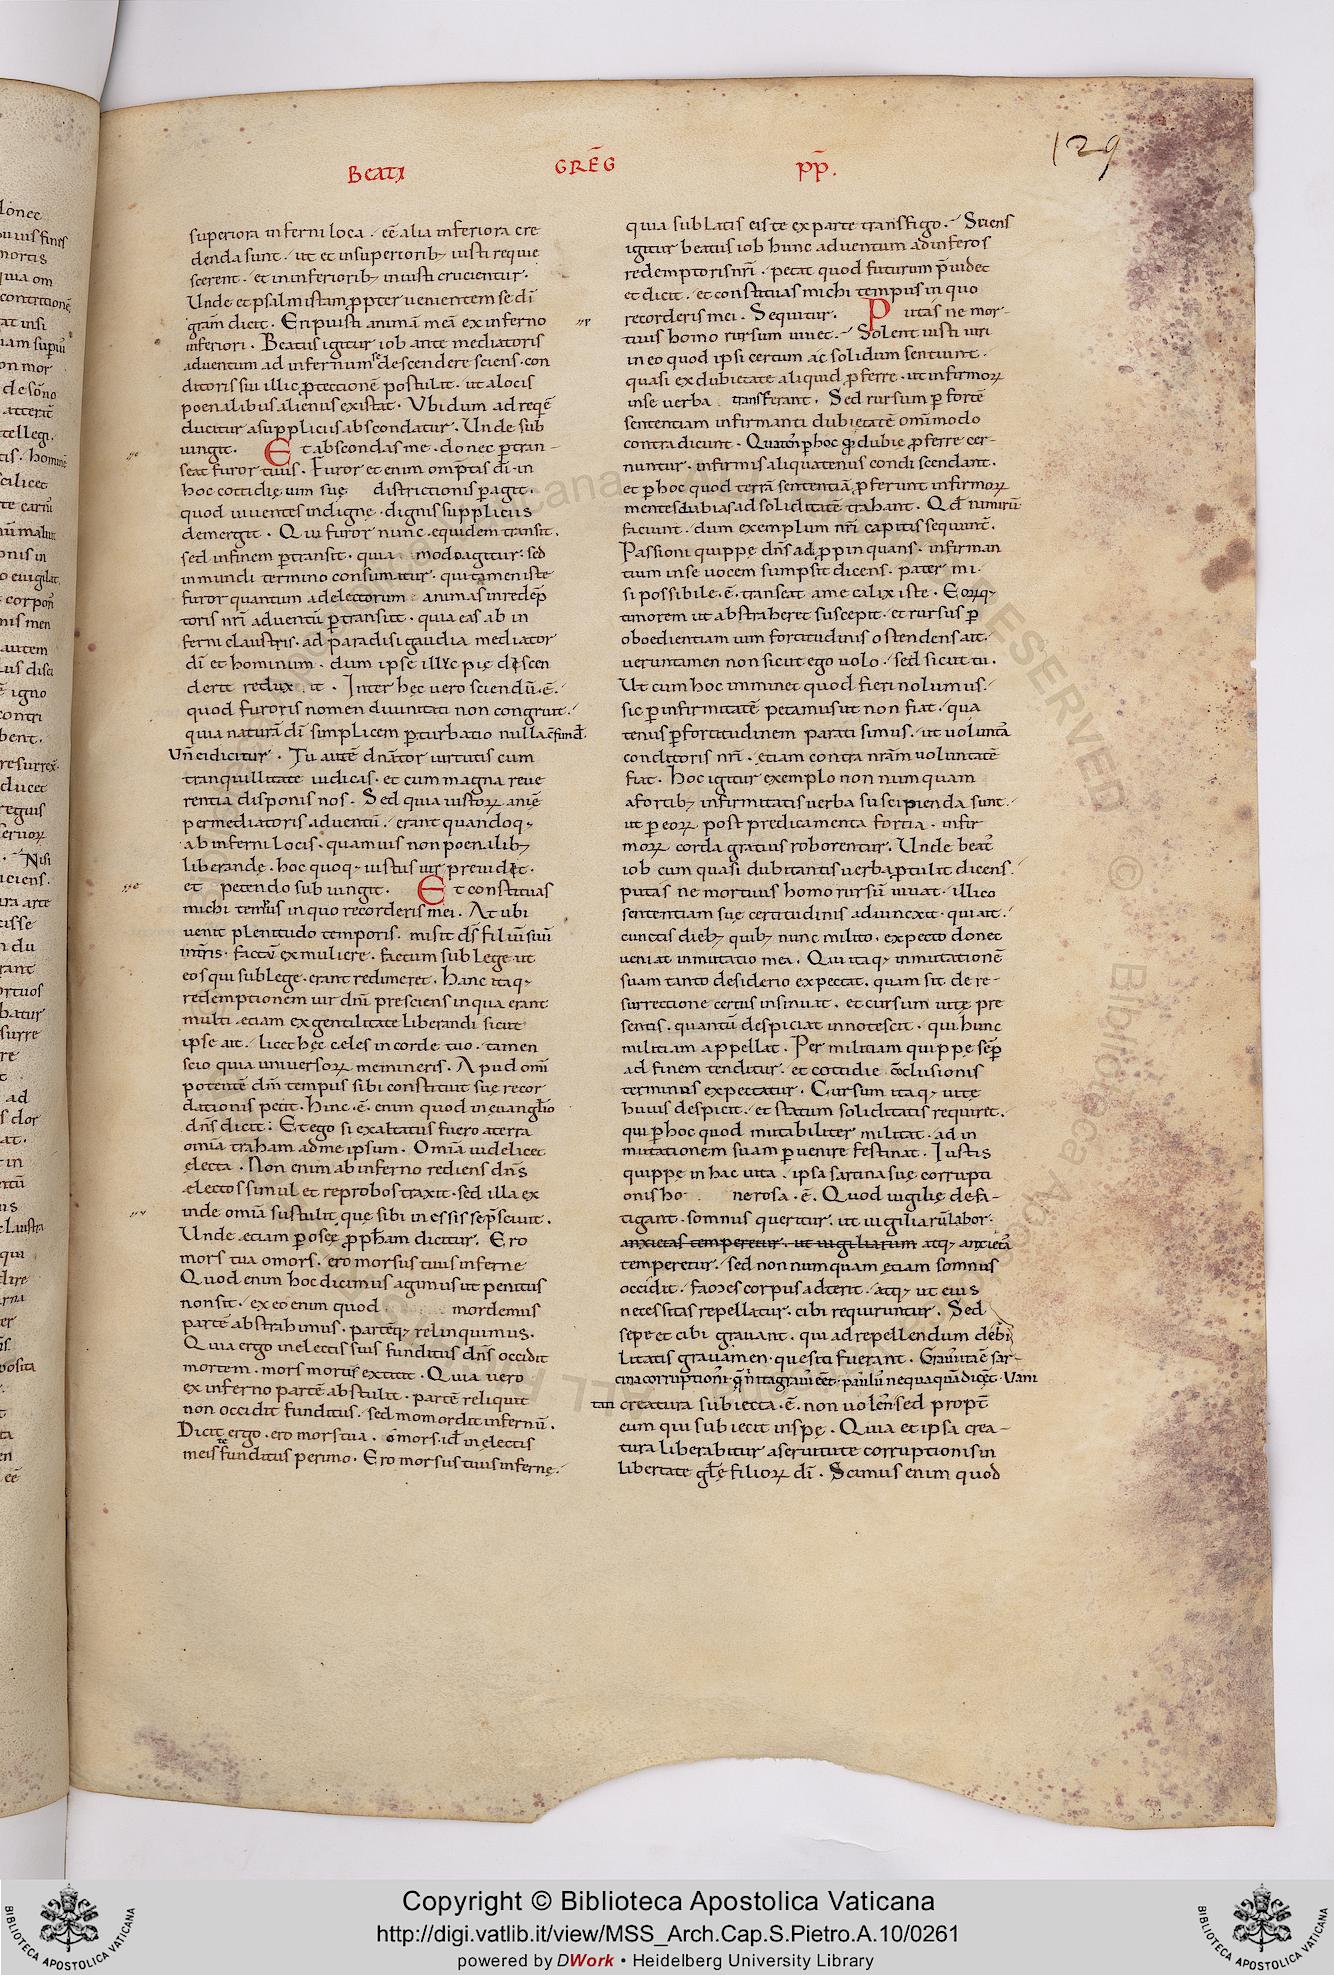 129
Beati GREḠ pp̄.
superiora inferni loca. eē alia inferiora cre
denda sunt. ut et in superiorib; iusti requie
scerent. et in inferiorib; iniusti crucientur.
Unde et psalmista ꝓpter uenientem se dī
gram̄ dicit. Eripuisti animā meā ex inferno
inferiori. Beatus igitur iob ante mediatoris
aduentum ad infernum se descendere sciens. con
ditoris sui illic ꝓtectionē postulat. ut a locis
poenalibus alienus existat. Ubi dum ad reqē
ducitur a suppliciis abscondatur. Unde sub
iungit. Et abscondas me. donec ꝑtran-
seat furor tuus. Furor et enim omp̄tis dī. in
hoc cottidię uim suę districtionis ꝑagit.
quod uiuentes indignę. dignis suppliciis
demergit. Qui furor nunc equidem transit.
sed in finem ꝑtransit. quia modo agitur: sed
in mundi termino consumatur. qui tamen iste
furor quantum ad electorum animas in redēp
toris nrī aduentū ꝑtransiit. qua eas ab in
ferni claustris. ad paradisi gaudia mediator
dī et hominum. dum ipse illuc pię descen
derit redux it. Inter hęc uero sciendū. ē.
quod furoris nomen diuinitati non congruit.
quia naturā dī simplicem ꝑturbatio nulla c̄fund̄.
Un̄ ei dicitur. Tu autē dn̄ator uirtutis cum
tranquillitate iudicas. et cum magna reue
rentia disponis nos. Sed quia iustoꝝ anīe
per mediatoris aduentū. erant quandoq;
ab inferni locis. quamuis non poenalib;
liberandę. hoc quoq; iustus uir preuidet.
et petendo subiungit. Et constituas
michi tempus in quo recorderis mei. At ubi
uenit plenitudo temporis. misit ds̄ filiū suū
in tr̄is. factū ex muliere. factum sub lege ut
eos qui sub lege erant redimeret. Hanc itaq;
redemptionem uir dnī presciens in qua erant
multi etiam ex gentilitate liberandi sicut
ipse ait. licet hęc celes in corde tuo. tamen
scio quia uniuersoꝝ memineris. Apud omī
potentē dm̄ tempus sibi constituit suę recor
dationis petit. Hinc. ē. enim quod in euanglīo
dn̄s dicit: Et ego si exaltatus fuero a terra
omīa traham ad me ipsum. Omīa uidelicet
electa. Non enim ab inferno rediens dn̄s
electos simul et reprobos traxit. sed illa ex
inde omīa sustulit quę sibi inessisse p̄sciuit.
Unde etiam ꝑ osee ꝓpham̄ dicitur. Ero
mors tua o mors. ero morsus tuus inferne
Quod enim hoc dicimus agimus ut penitus
non sit. ex eo enim quod mordemus
partē abstrahimus. partēq; relinquimus.
Quia ergo in electis suis funditus dn̄s occidit
mortem. mors mortis extitit. Quia uero
ex inferno partē abstulit. partē reliquit
non occidit funditus. sed momordit infernū.
Dicit ergo. ero mors tua. o mors. id̄ in electis
meis te funditus perimo. Ero morsus tuus infernę.
quia sublatis eis te ex parte transfigo. Sciens
igitur beatus iob hunc aduentum ad inferos
redemptoris nrī. petat quod futurum p̄uidet
et dicit. et constituas michi tempus in quo
recorderis mei. Sequitur. Putas ne mor-
tuus homo rursum uiuet. Solent iusti uiri
in eo quod ipsi certum ac solidum sentiunt.
quasi ex dubietate aliquid ꝓferre. ut infirmoꝝ
in se uerba transferant. Sed rursum ꝑ fortē
sententiam infirmanti dubietatē omīmodo
contradicunt. Quaten̄ ꝑ hoc qd̄ dubie ꝓferre cer-
nuntur. infirmis aliquatenus condiscendant.
et ꝑ hoc quod certā sententiā ꝓferunt infirmoꝝ
mentes dubias ad soliditatē trahant. Qd̄ nimirū
faciunt. dum exemplum nrī capitis sequunt̄.
Passioni quippę dn̄s adpropinquans. infirman
tium in se uocem sumpsit dicens. pater mi.
si possibile. ē. transeat a me calix iste. Eoꝝq;
timorem ut abstraheret suscepit. et rursus ꝑ
oboedientiam uim fortitudinis ostendens ait.
ueruntamen non sicut ego uolo. sed sicut tu.
Ut cum hoc imminet quod fieri nolumus.
sic ꝑ infirmitatē petamus ut non fiat. qua
tenus ꝑ fortitudinem parati simus. ut uoluntā
conditoris nrī. etiam contra nrām uoluntatē
fiat. Hoc igitur exemplo non numquam
a fortib; infirmitatis uerba suscipienda sunt.
ut ꝑ eoꝝ post predicamenta fortia. infir
moꝝ corda gratius roborentur. Unde beat̄
iob cum quasi dubitantis uerba ꝓtulit dicens.
putas ne mortuus homo rursū uiuat. illico
sententiam suę certitudinis adiuncxit. qui ait.
cunctis dieb; quib; nunc milito. expecto donec
ueniat inmutatio mea. Qui itaq; inmutationē
suam tanto desiderio expectat. quam sit de re-
surrectione certus insinuat. et cursum uitę pre
sentis. quantū despiciat innotescit. qui hunc
militiam appellat. Per militiam quippę sēp
ad finem tenditur. et cottidie c̄clusionis
terminus expectatur. Cursum itaq; uitę
huius despicit. et statum soliditatis requiret.
qui ꝑ hoc quod mutabiliter militat. ad in
mutationem suam ꝑuenire festinat. Iustis
quippę in hac uita. ipsa sarcina suę corrupti
onis ho nerosa. ē. Quod uigilię defa-
tigant. somnus queritur. ut uigiliarū labor.
anxietas temperetur. ut uigiliarum atq; anxietā
temperetur. sed non numquam etiam somnus
occidit. fames corpus adterit. atq; ut eius
necessitas repellatur. cibi requiruntur. Sed
sepe et cibi grauant. qui ad repellendum debi
litatis grauamen. quesiti fuerant. Grauis itaq; ē sar-
cina corruptionis. q̄ n̄ ita grauis eēt. paulus nequaquā dicēt. Vani
tati creatura subiecta. ē. non uolen̄. sed propt̄
eum qui subiecit in spę. Quia et ipsa crea-
tura liberabitur a seruitute corruptionis in
libertate gl̄ę filioꝝ dī. Scimus enim quod
Copyright © Biblioteca Apostolica Vaticana
http://digi.vatlib.it/view/MSS_Arch.Cap.S.Pietro.A.10/0261
powered by DWork • Heidelberg University Library
BIBLIOTECA APOSTOLICA VATICANA
BIBLIOTECA APOSTOLICA VATICANA